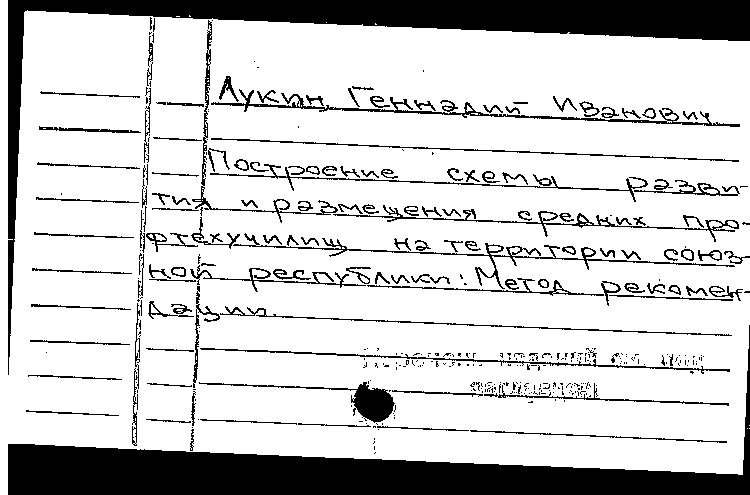 Лукин Геннадий Иванович.
Построение схемы разви-
тия и размещения средних про-
фтехучилищ на территории союз-
ной республики: Метод рекомен-
дации.
Перечень изданий см. под
заглавием